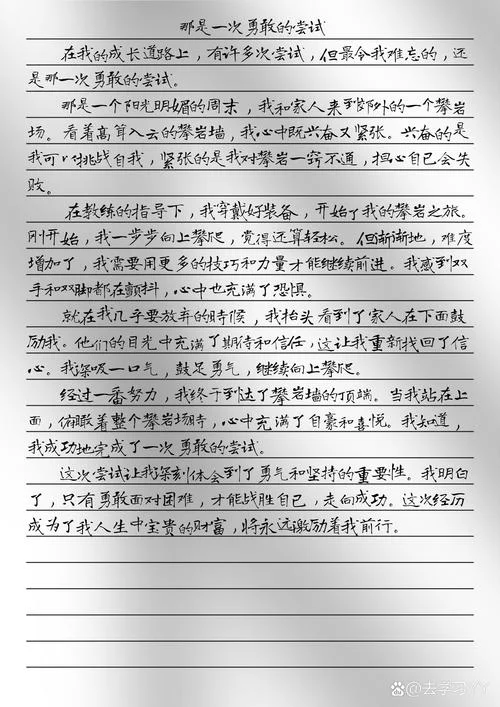 那是一次勇敢的尝试
在我的成长道路上，有许多次尝试，但最令我难忘的，还
是那一次勇敢的尝试。
那是一个阳光明媚的周末，我和家人来到郊外的一个攀岩
场。看着高耸入云的攀岩墙，我心中既兴奋又紧张。兴奋的是
我可以挑战自我，紧张的是我对攀岩一窍不通，担心自己会失
败。
在教练的指导下，我穿戴好装备，开始了我的攀岩之旅。
刚开始，我一步步向上攀爬，觉得还算轻松。但渐渐地，难度
增加了，我需要用更多的技巧和力量才能继续前进。我感到双
手和双脚都在颤抖，心中也充满了恐惧。
就在我几乎要放弃的时候，我抬头看到了家人在下面鼓
励我。他们的目光中充满了期待和信任，这让我重新找回了信
心。我深吸一口气，鼓足勇气，继续向上攀爬。
经过一番努力，我终于到达了攀岩墙的顶端。当我站在上
面，俯瞰着整个攀岩场时，心中充满了自豪和喜悦。我知道，
我成功地完成了一次勇敢的尝试。
这次尝试让我深刻体会到了勇气和坚持的重要性。我明白
了，只有勇敢面对困难，才能战胜自己，走向成功。这次经历
成为了我人生中宝贵的财富，将永远激励着我前行。
@去学习丫丫